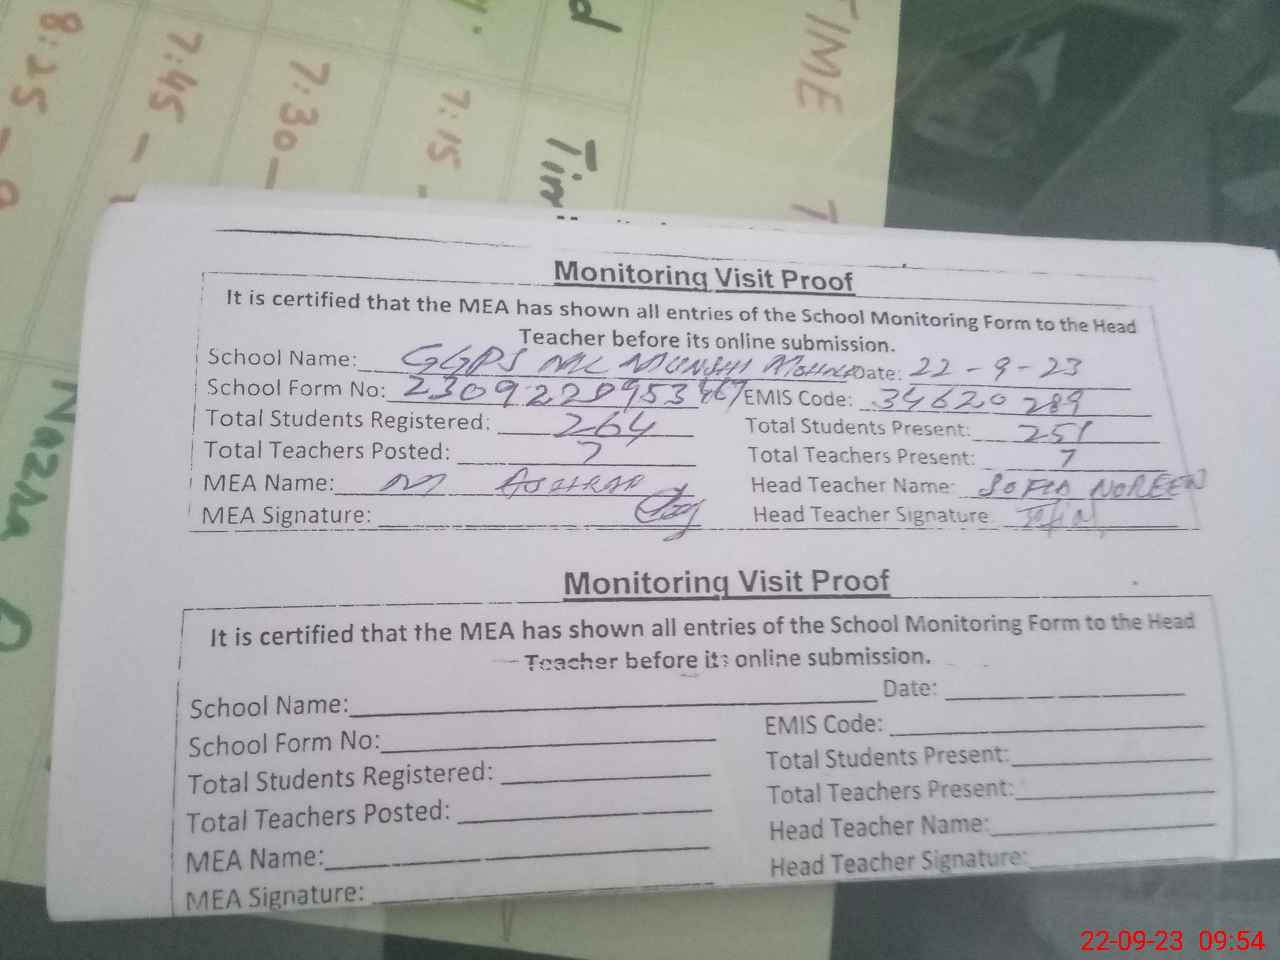 TIME
8:25 -
7:45 -
7:30 -
7:15 -
Tim
Nazra
Monitoring Visit Proof
It is certified that the MEA has shown all entries of the School Monitoring Form to the Head
Teacher before its online submission.
School Name: GGPS MC MUNSHI Date: 22-9-23
School Form No: 2309220953467 EMIS Code: 34620289
Total Students Registered: 264 Total Students Present: 251
Total Teachers Posted: 7 Total Teachers Present: 7
MEA Name: M ASHRAF Head Teacher Name: SOFIA NOREEN
MEA Signature: Head Teacher Signature
Monitoring Visit Proof
It is certified that the MEA has shown all entries of the School Monitoring Form to the Head
Teacher before its online submission.
School Name: Date:
School Form No: EMIS Code:
Total Students Registered: Total Students Present:
Total Teachers Posted: Total Teachers Present:
MEA Name: Head Teacher Name:
MEA Signature: Head Teacher Signature:
22-09-23 09:54